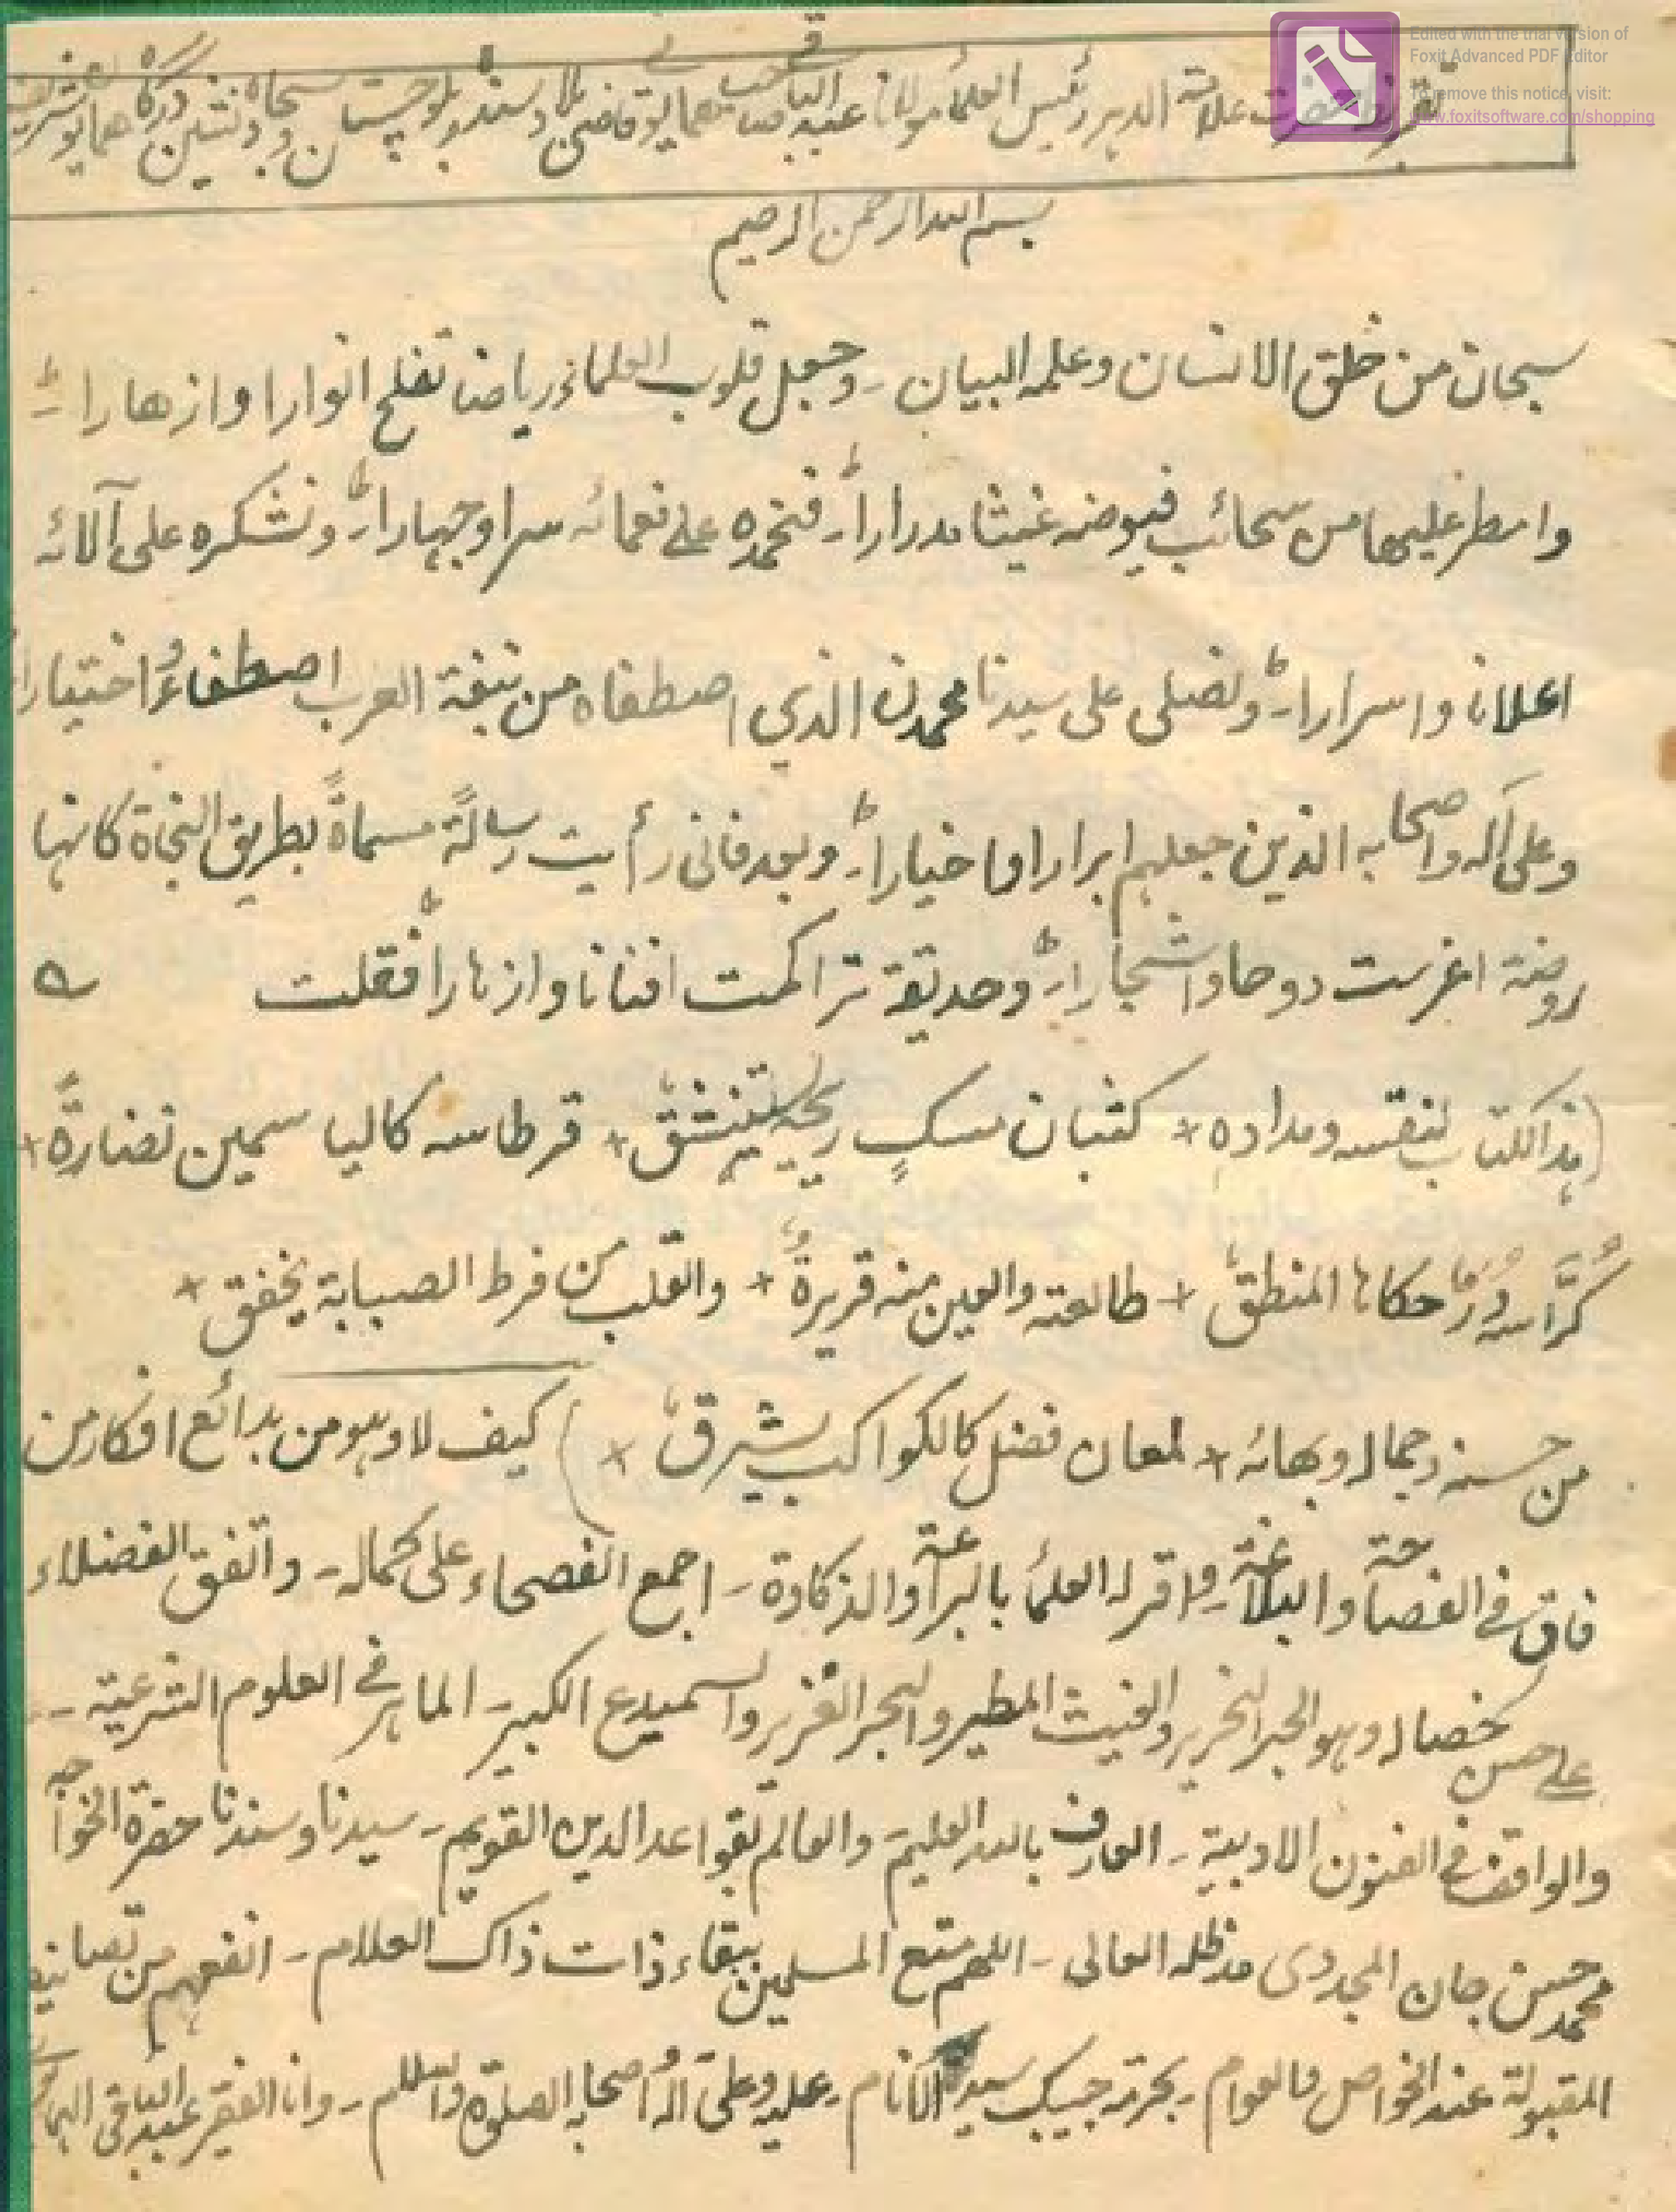 Edited with the trial version of
Foxit Advanced PDF Editor
To remove this notice, visit:
www.foxitsoftware.com/shopping
تقریظ حضرت علامۃ الدہر رئیس العلماء مولانا عبدالباقی صاحب ھمایونی قاضی بلاد سندہ و بلوچستان و سجادہ نشین درگاہ ھمایون شریف
بسم اللہ الرحمن الرحیم
سبحان من خلق الانسان وعلمہ البیان۔ وجعل قلوب العلماء ریاضا تفلح انوارا وازھارا۔ؕ
وامطر علیھا من سحائب فیوضہ غیثا مدرارا۔ؕ فنحمدہ علے نعمائہ سرا وجہارا۔ؕ ونشکرہ علی آلائہ
اعلانا واسرارا۔ؕ ونصلی علی سیدنا محمدن الذی اصطفاہ من نبغۃ العرب اصطفاءً واختیارا
وعلی آلہ واصحابہ الذین جعلہم ابرارا واخیارا۔ؕ وبعد فانی رأیت رسالۃً مسماۃً بطریق النجاۃ کانہا
روضۃ اغرست دوحا واشجارا۔ؕ وحدیقۃ تراکمت افنانا وازہارا فقلت ؎
(ہذا لکتاب بنقسہ ومدادہ + کثبان مسکٍ ریحہ یتنشق + قرطاسہ کالیاسمین نضارۃً +
کرّاسہ دررٌ حکاہا المنطق + طالعتہ والعین منہ قریرۃٌ + والقلب من فرط الصبابۃ یخفق +
من حسنہ وجمالہ وبھائہ + لمعان فضل کالکواکب یشرق + ) کیف لا وہو من بدائع افکار من
فاق فے الفصاحۃ والبلاغۃ۔ واقر لہ العلماء بالبراعۃ والذکاوۃ۔ اجمع الفصحاء علی کمالہ۔ واتفق الفضلاء
علے حسن خصالہ وہو الحبر النحریر والغیث المطیر والبحر الغزیر والسمیدع الکبیر۔ الماہر فے العلوم الشرعیۃ۔
والواقف فے الفنون الادبیۃ۔ العارف باللہ العلیم۔ والعالم بقواعد الدین القویم۔ سیدنا وسندنا حضرۃ الخواجہ
محمد حسن جان المجددی مدظلہ العالی۔ اللھم متع المسلمین ببقاء ذات ذاک العلام۔ انفعہم من تصانیفہ
المقبولۃ عند الخواص والعوام۔ بحرمۃ حبیبک سید الانام۔ علیہ وعلی آلہ واصحابہ الصلوۃ والسلام۔ وانا الفقیر عبدالباقی الہمایونی